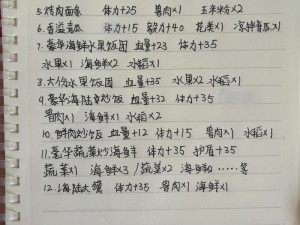 5.烤肉面条 体力+25 兽肉×1 玉米粉×2
6.香溢青瓜 体力+15 毅力+40 花菜×1 凉拌青瓜×1
7.豪华海鲜水果饭团 血量+23 体力+35
水果×1 海鲜×2 水稻×1
8.大份水果饭团 血量+35 水果×2 水稻×1
9.豪华海陆烹炒饭 血量+32 体力+35
兽肉×1 海鲜×1 水稻×1
10.鲜肉炒饭 血量+12 体力+15 兽肉×1 水稻×1
11.豪华蔬菜炒海鲜 体力+35 护盾+35
蔬菜×1 海鲜×3 /蔬菜×2 海鲜×2 ……等
12.海陆大餐 体力+35 兽肉×1 海鲜×1